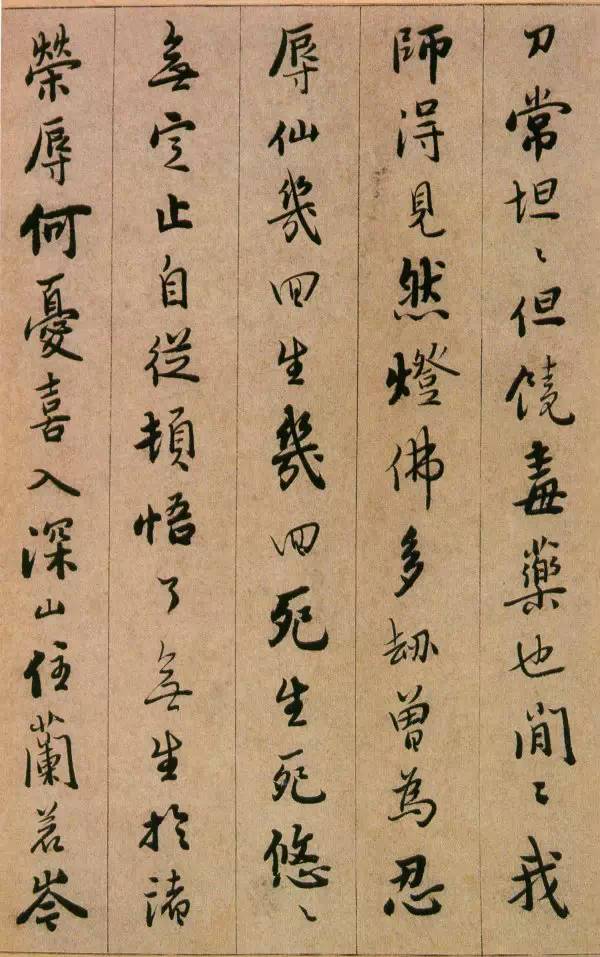 刀常坦〻但饒毒藥也閒〻我
師得見然燈佛多劫曽為忍
辱仙幾回生幾回死生死悠〻
無定止自從頓悟了無生於諸
榮辱何憂喜入深山住蘭若岑